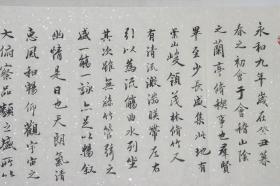 永和九年歲在癸丑暮
春之初會于會稽山陰
之蘭亭脩禊事也羣賢
畢至少長咸集此地有
崇山峻領茂林脩竹又
有清流激湍暎帶左右
引以為流觴曲水列坐
其次雖無絲竹管弦之
盛一觴一詠亦足以暢叙
幽情是日也天朗氣清
惠風和暢仰觀宇宙之
大俯察品類之盛所以